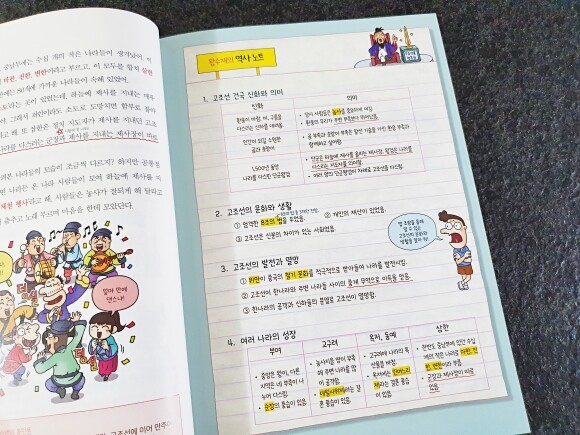 중남부에는 수십 개의 작은 나라들이 생겨났어.
마한, 진한, 변한이라고 부르고, 이 모두를 합쳐 삼한
한에는 80개에 가까운 나라들이 속해 있었어.
도라는 곳이 있었는데, 하늘에 제사를 지내는 매우
야. 그래서 죄인이라도 소도로 도망치면 함부로 잡아
고 해. 또 삼한은 정치 지도자가 제사를 지내던 고조
나라를 다스리는 군장과 제사를 지내는 제사장이 따로
러면 나라들의 모습이 조금씩 다르지? 하지만 공통점
면 나라는 온 나라 사람들이 모여 하늘에 제사를
제천 행사라고 해. 사람들은 농사가 잘되게 해 달라고
춤추고 노래 부르며 마음을 한데 모았단다.
얼마 만에
댄스냐!
덩실
덩실
고조선에 이어 만주와
왕수재의 역사 노트
1. 고조선 건국 신화와 의미
신화
의미
환웅이 바람, 비, 구름을
다스리는 신하를 데려옴.
당시 사람들은 농사를 중요하게 여김.
환웅의 무리가 주변 부족보다 뛰어났음.
인간이 되길 소원한
곰과 호랑이
곰 부족과 호랑이 부족은 앞선 기술을 가진 환웅 부족과
함께하고 싶어함.
1,500년 동안
나라를 다스린 단군왕검
단군은 하늘에 제사를 올리는 제사장, 왕검은 나라를
다스리는 지도자를 의미함.
여러 명의 단군왕검이 차례로 고조선을 다스림.
2. 고조선의 문화와 생활
① 엄격한 8조의 법을 두었음.
② 개인의 재산이 있었음.
③ 고조선은 신분의 차이가 있는 사회였음.
법 조항을 통해
알 수 있는
고조선의 문화와
생활을 알아 둬!
3. 고조선의 발전과 멸망
① 위만이 중국의 철기 문화를 적극적으로 받아들여 나라를 발전시킴.
② 고조선이 한나라와 주변 나라들 사이의 중계 무역으로 이득을 얻음.
③ 한나라의 공격과 신하들의 분열로 고조선이 멸망함.
4. 여러 나라의 성장
부여
고구려
옥저, 동예
삼한
중앙은 왕이, 다른
지역은 네 부족이 나
누어 다스림.
순장의 풍습이 있음.
농사지을 땅이 부족
해 주변 나라를 많
이 공격함.
데릴사위제라는 결
혼 풍습이 있음.
고구려에 나라의 특
산물을 바침.
옥저에는 민며느리
제라는 결혼 풍습
이 있음.
한반도 중남부에 있던 수십
개의 작은 나라로 마한, 진
한, 변한이라 부름.
군장과 제사장이 따로
있음.